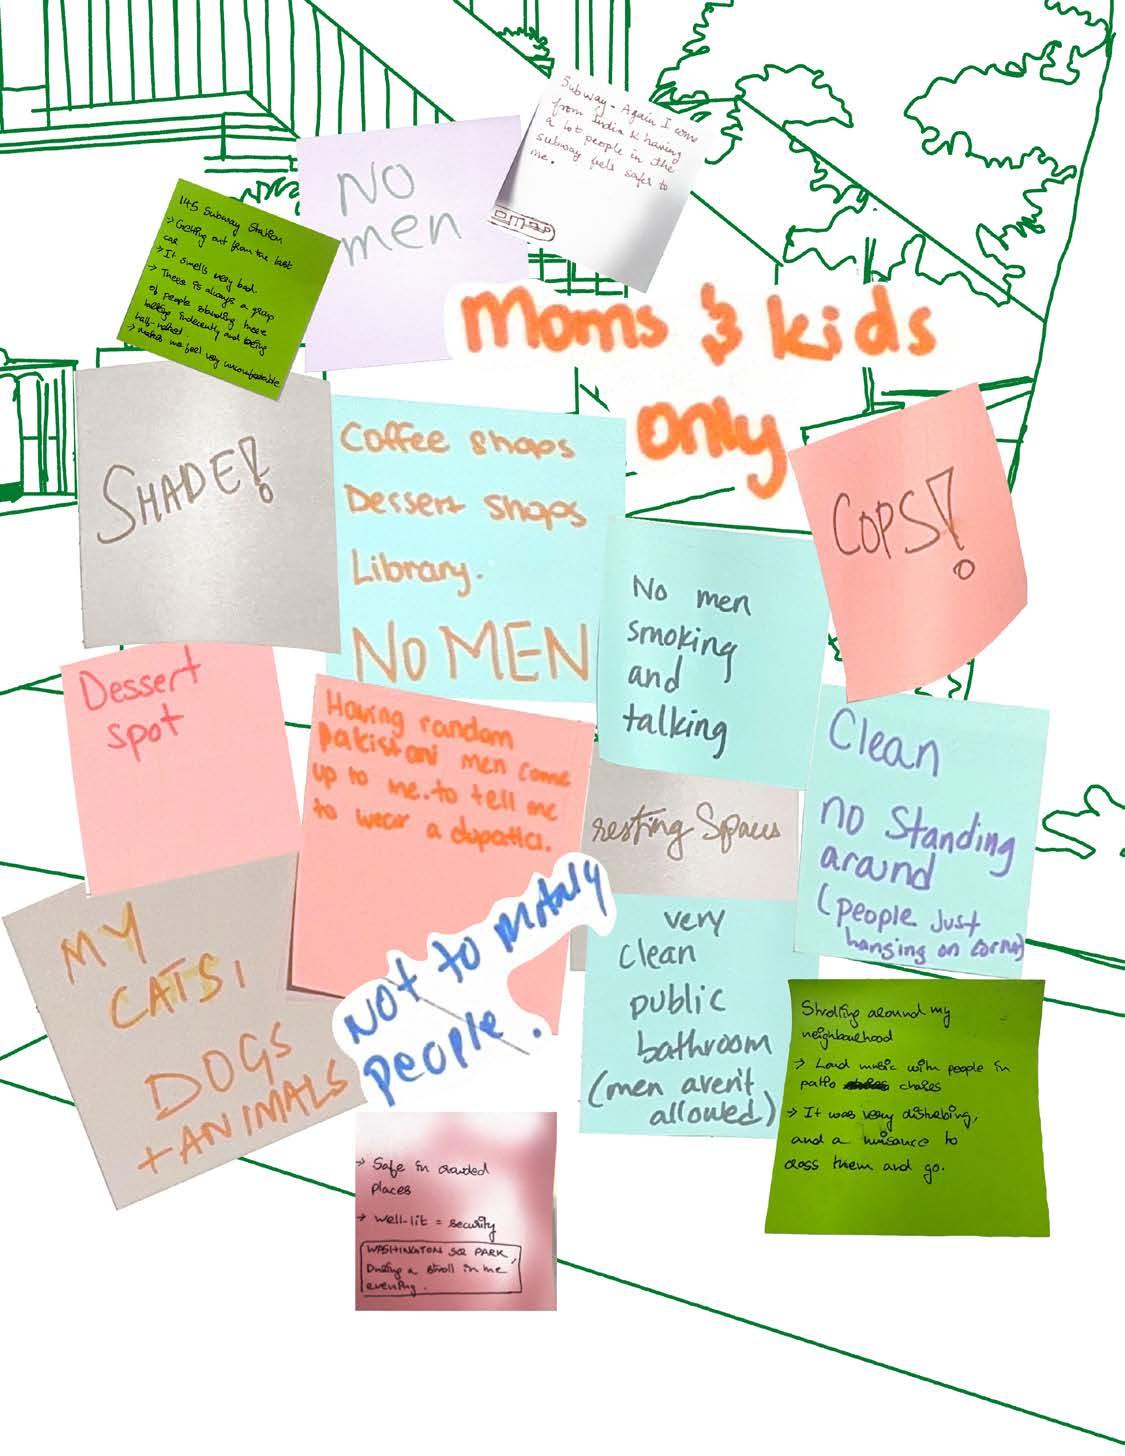 Subway - Again I come
from India & having
a lot people in the
subway feels safer to
me.
NO
men
145 Subway Station
→ Getting out from the last
car
→ It smells very bad.
→ There is always a group
of people standing there
talking indecently and being
half-naked.
→ makes me feel very uncomfortable
Moms & kids
only
SHADE!
Coffee shops
Dessert shops
Library.
NO MEN
No men
smoking
and
talking
COPS!
Dessert
spot
Having random
Pakistani men come
up to me. to tell me
to wear a dupatta.
resting Spaces
Clean
no Standing
around
(people just
hanging on corner)
MY
CATS,
DOGS
+ANIMALS
NOt to many
people.
very
clean
public
bathroom
(men aren't
allowed)
Strolling around my
neighbourhood
→ Loud music with people in
patio chairs
→ It was very disturbing,
and a nuisance to
cross them and go.
→ Safe in crowded
places
→ well-lit = security
WASHINGTON SQ PARK,
During a stroll in the
evening.